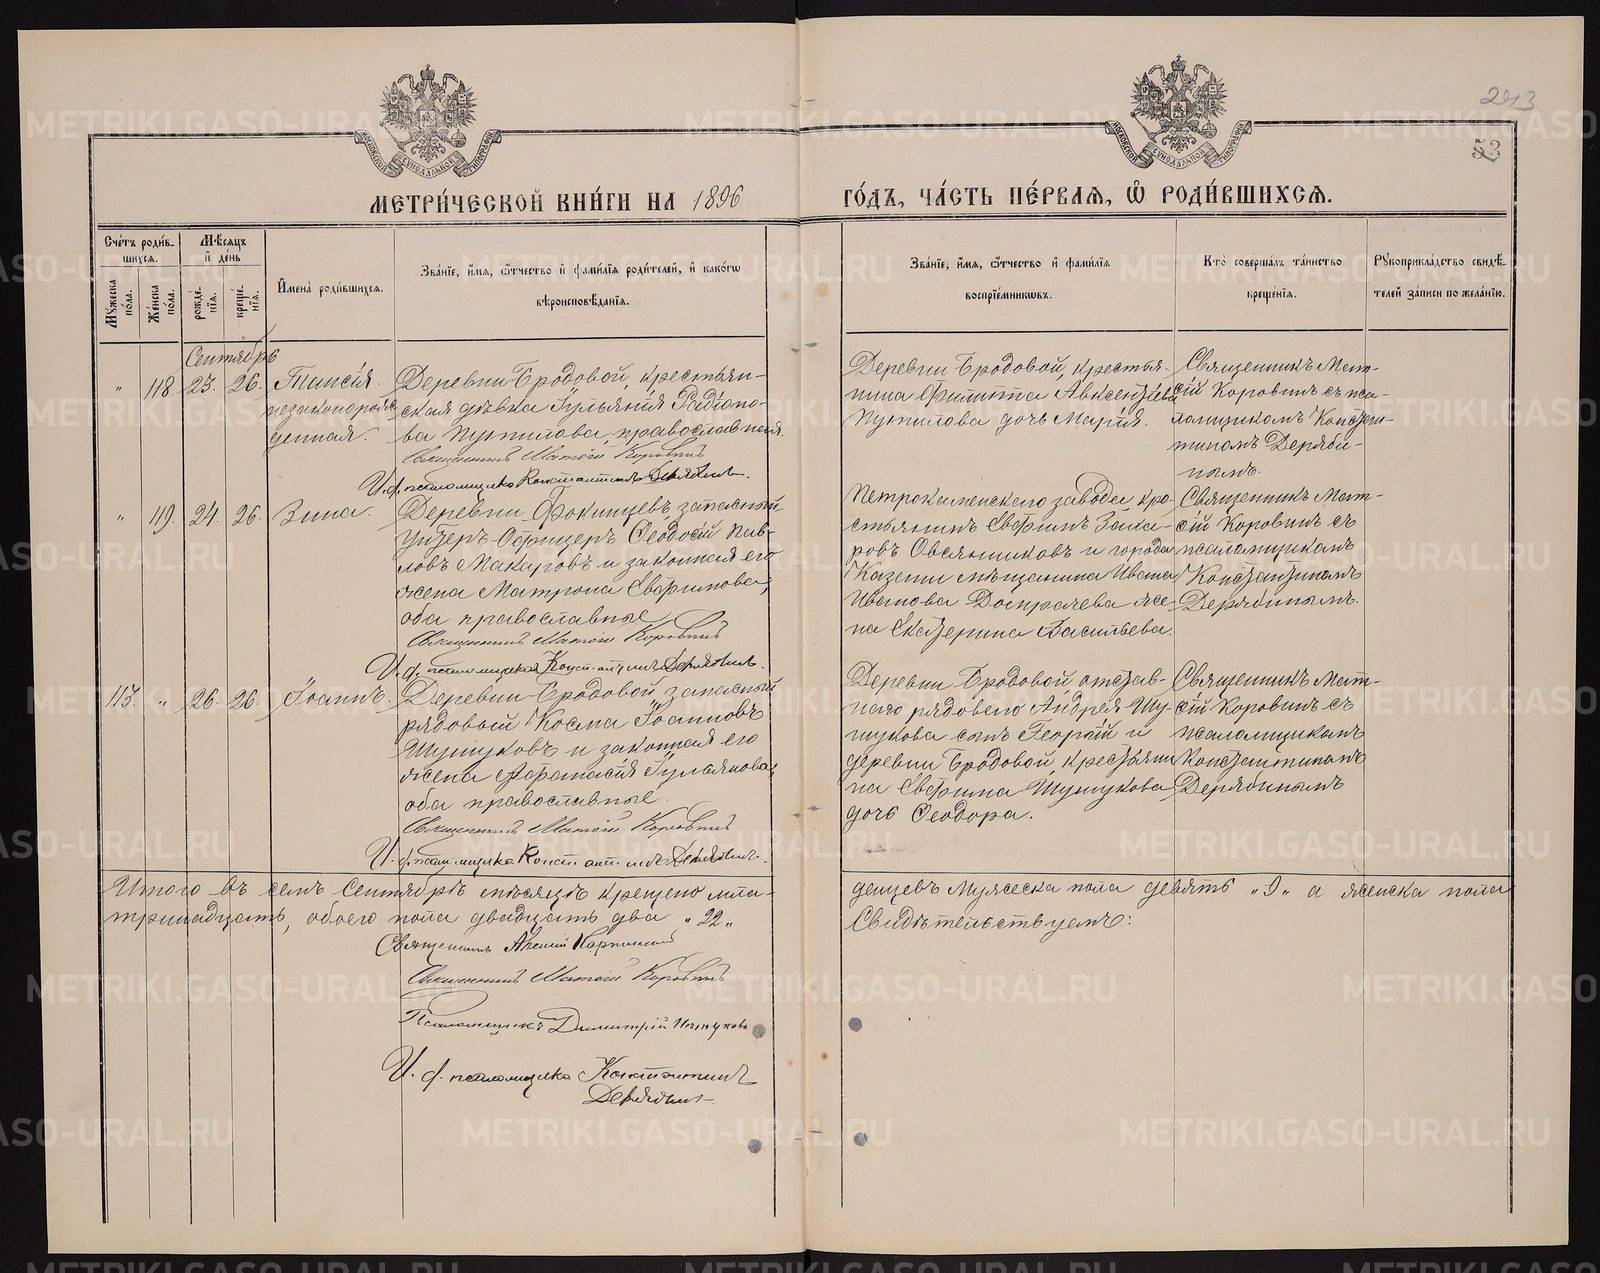 2913
53
МЕТРИ́ЧЕСКОЙ КНИ́ГИ НА 1896
ГО́ДЪ, ЧА́СТЬ ПЕ́РВАЯ, Ѽ РОДИ́ВШИХСЯ.
Сче́тъ роди́в-
шихся.
Му́жеска пола.
Же́нска по́ла.
Мѣ́сяцъ
и҆ де́нь
рожде́нїя.
креще́нїя.
И҆мена̀ роди́вшихся.
Зва́нїе, и҆́мя, ѻ҆́тчество и҆ фамилїя роди́телей, и҆ како́гѡ
вѣроисповѣ́данїя.
Зва́нїе, и҆́мя, ѻ҆́тчество и҆ фами́лїя
воспрїе́мникѡвъ.
Кто̀ соверша́лъ та́инство
креще́нїя.
Рꙋкоприкла́дство свидѣ́-
телей за́писи по жела́нїю.
Сентябрь
" 118. 23. 26. Таисія.
незаконорож-
денная.
Деревни Бродовой, крестьян-
ская дѣвка Іульянія Радіоно-
ва Путилова, православная.
Священникъ Матѳій Коровинъ
И. д. псаломщика Константинъ Дерябинъ.
Деревни Бродовой, крестья-
нина Филиппа Авксентіева
Путилова дочь Марія.
Священникъ Мат-
ѳій Коровинъ съ пса-
ломщикомъ Констан-
тиномъ Деряби-
нымъ.
" 119. 24. 26. Зина.
Деревни Фокинцевъ, запасный
Унтеръ-Офицеръ Ѳеодосій Пав-
ловъ Макаровъ и законная его
жена Матрона Евфимова,
оба православные
Священникъ Матѳій Коровинъ
И. д. псаломщика Константинъ Дерябинъ.
Петрокаменскаго завода, кре-
стьянинъ Евфимъ Заха-
ровъ Овсянниковъ и города
Казани мѣщанина Ивана
Иванова жe-
на Екатерина Васильева.
Священникъ Мат-
ѳій Коровинъ съ
псаломщикомъ
Константиномъ
Дерябинымъ.
113. " 26. 26. Іоаннъ.
Деревни Бродовой, запасный
рядовой Косма Іоанновъ
Шушуковъ и законная его
жена Аѳанасія Іульянова,
оба православные.
Священникъ Матѳій Коровинъ
И. д. псаломщика Константинъ Дерябинъ.
Деревни Бродовой отстав-
наго рядоваго Андрея Шу-
шукова сынъ Георгій и
деревни Бродовой, крестьяни-
на Евфима Шушукова
дочь Ѳеодора.
Священникъ Мат-
ѳій Коровинъ съ
псаломщикомъ
Константиномъ
Дерябинымъ
Итого въ семъ Сентябрѣ мѣсяцѣ крещено мла-
денцевъ мужеска пола девять „9„ а женска пола
тринадцать, обоего пола двадцать два „22„
Свидѣтельствуемъ:
Священникъ
Священникъ Матѳій Коровинъ
Псаломщикъ Димитрій
И. д. псаломщика Константинъ
Дерябинъ.